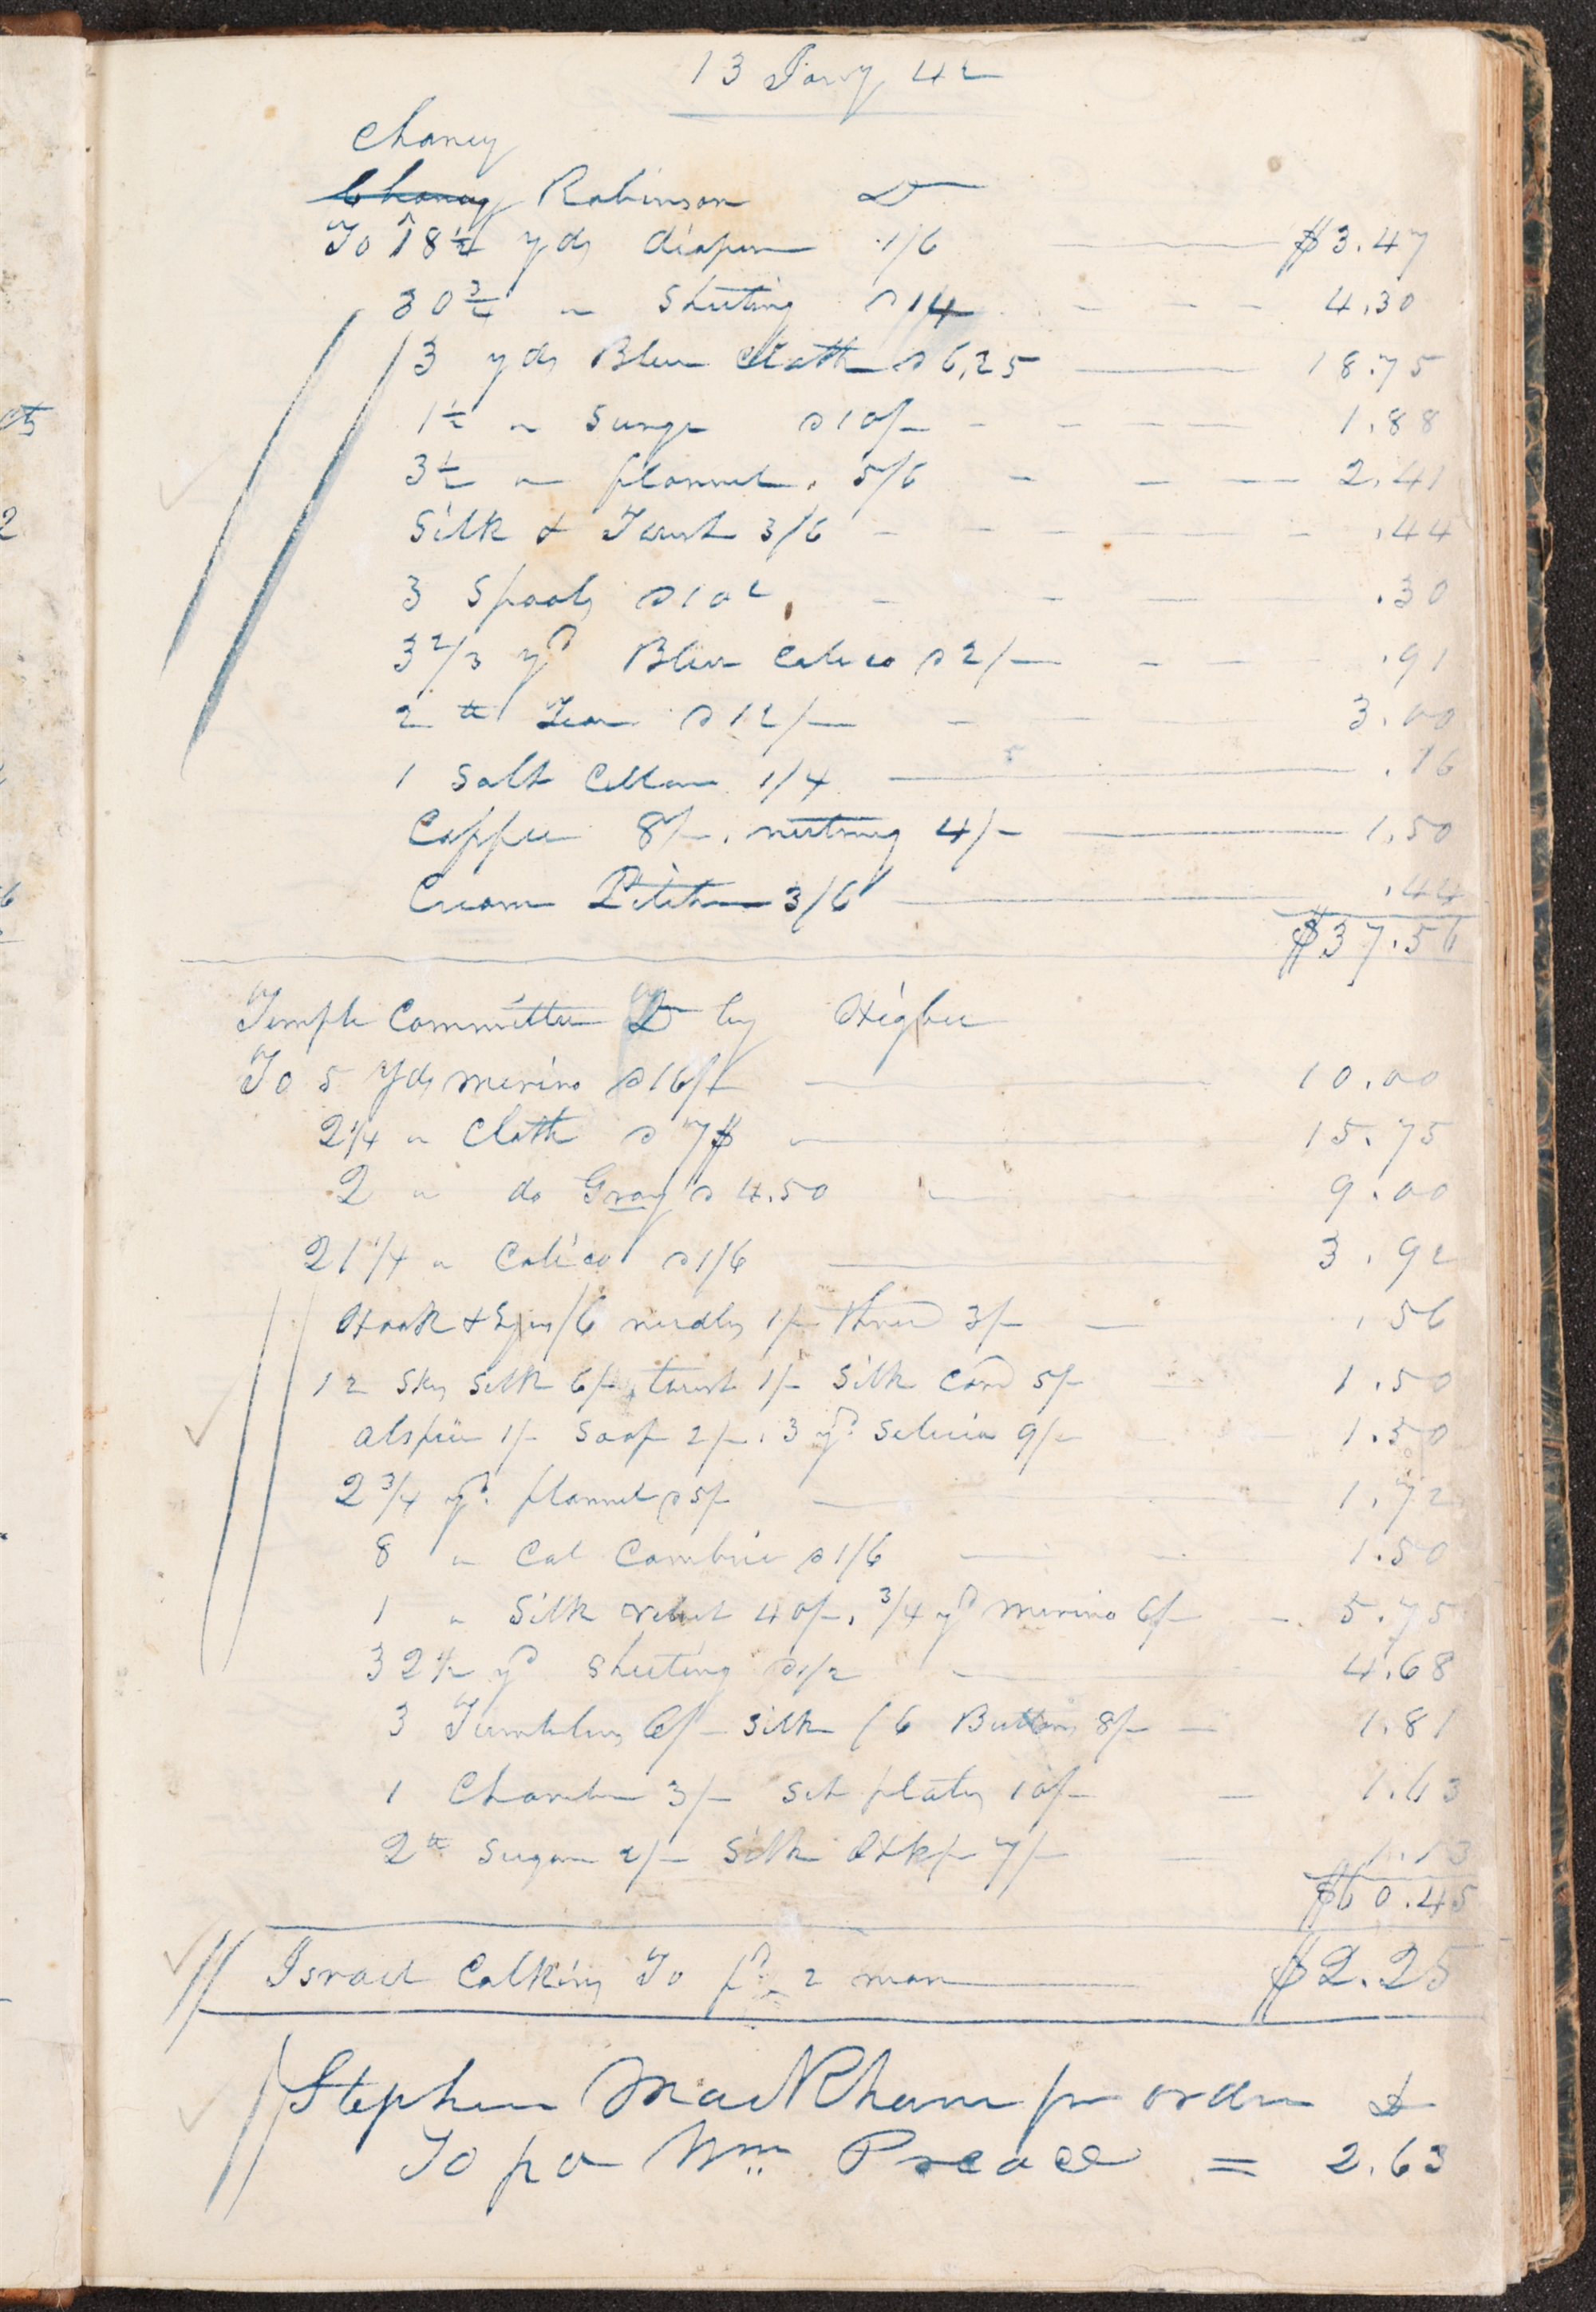 13 Jany 42
Chancy
Chancy Robinson Dr
To 18½ yds diaper 1/6 $3.47
30¾ " Sheeting @ 14 4.30
3 yds Blue Cloth @ 6,25 18.75
1½ " Surge @ 10/- 1.88
3½ " flannel. 5/6 2.41
Silk & Twist 3/6 .44
3 Spools @ 10c .30
3 2/3 yd Blue Calico @ 2/- .91
2 lb Tea @ 12/- 3.00
1 Salt Cellar 1/4 .16
Coffee 8/-. nutmeg 4/- 1.50
Cream Pitcher 3/6 .44
$37.56
Temple Committee Dr by Higbee
To 5 Yds merino @ 16/- 10.00
2¼ " Cloth @ 7$ 15.75
2 " do Gray @ 4.50 9.00
21¼ " Calico @ 1/6 3.92
Hook & Eyes /6 needles 1/- thread 3/- .56
12 Sks Silk 6/-, twist 1/- Silk Cord 5/- 1.50
alspice 1/- Soap 2/-. 3 yd Selicia 9/- 1.50
2¾ yd. flannel @ 5/- 1.72
8 " Cal Cambric @ 1/6 1.50
1 " Silk velvet 40/-. ¾ yd merino 6/- 5.75
32½ yd Sheeting @ 1/2 4.68
3 Tumblers 6/- Silk /6 Buttons 8/- 1.81
1 Chamber 3/- Set plates 10/- 1.63
2 lb Sugar 2/- Silk Hkf 7/- 1.13
$60.45
Israel Calkins To pr man $2.25
Stephen Markham pr order Dr
To pd Wm Preace = 2.63